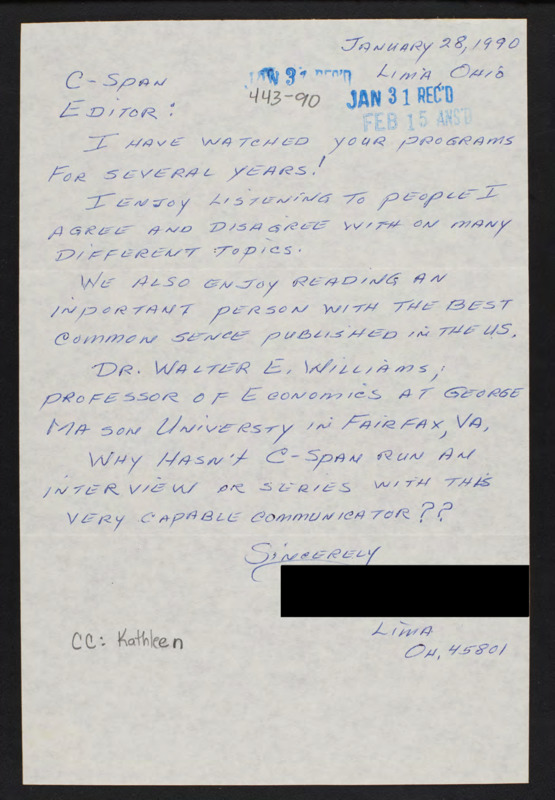 JANUARY 28, 1990
LIMA OHIO
C-SPAN
JAN 31 REC'D
443-90
JAN 31 REC'D
FEB 15 ANS'D
EDITOR:
I HAVE WATCHED YOUR PROGRAMS
FOR SEVERAL YEARS!
I ENJOY LISTENING TO PEOPLE I
AGREE AND DISAGREE WITH ON MANY
DIFFERENT TOPICS.
WE ALSO ENJOY READING AN
INPORTANT PERSON WITH THE BEST
COMMON SENCE PUBLISHED IN THE US.
DR. WALTER E. WILLIAMS,
PROFESSOR OF ECONOMICS AT GEORGE
MASON UNIVERSTY IN FAIRFAX, VA.
WHY HASN'T C-SPAN RUN AN
INTERVIEW OR SERIES WITH THIS
VERY CAPABLE COMMUNICATOR??
SINCERELY
LIMA
OH. 45801
CC: Kathleen